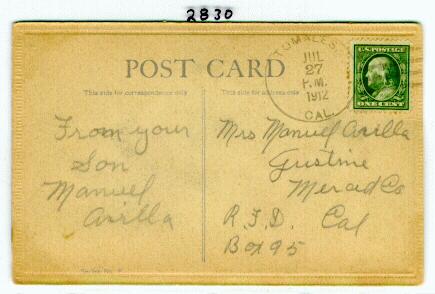 2830
TOMALES
JUL
27
P.M.
1912
CAL.
U.S. POSTAGE
ONE CENT
POST CARD
This side for correspondence only
This side for address only
From your
Son
Manuel
Avilla
Mrs Manuel Avilla
Gustine
Merced Co
R.F.D. Cal
Box 95